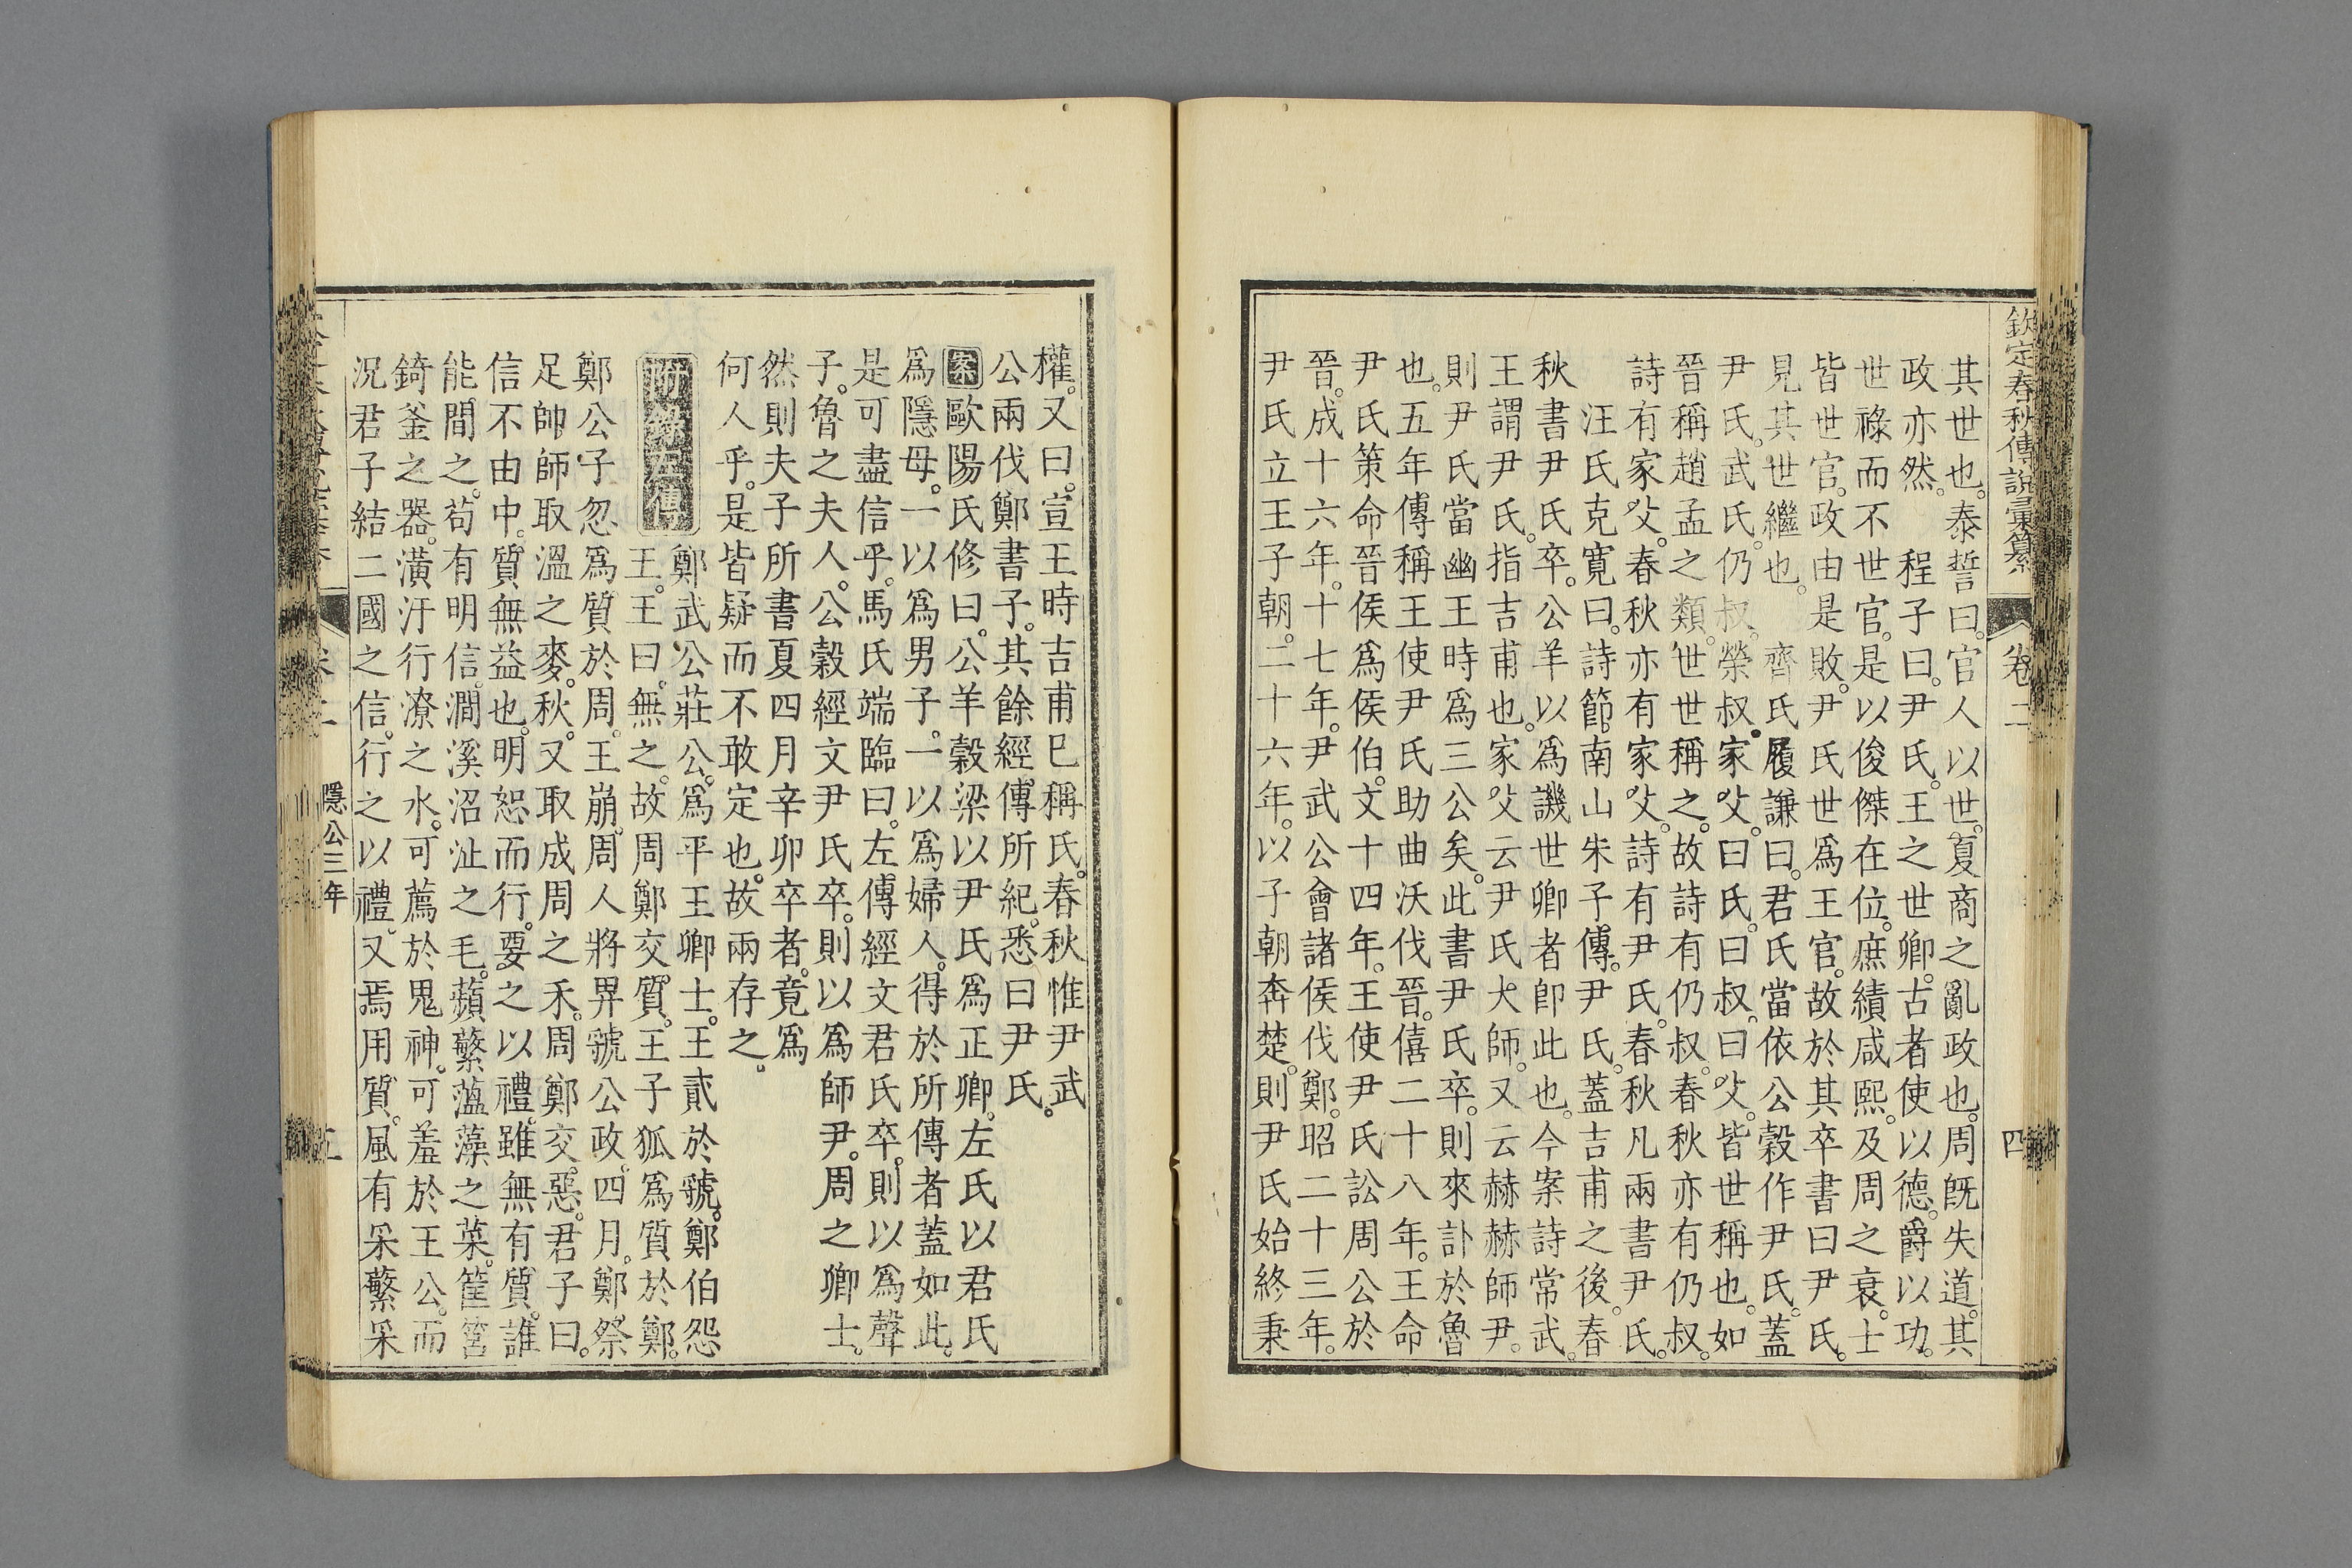 欽定春秋傳說彙纂 卷二 四
其世也。泰誓曰。官人以世。夏商之亂政也。周旣失道。其
政亦然。 程子曰。尹氏。王之世卿。古者使以德。爵以功。
世祿而不世官。是以俊傑在位。庶績咸熙。及周之衰。士
皆世官。政由是敗。尹氏世爲王官。故於其卒書曰尹氏。
見其世繼也。 齊氏履謙曰。君氏當依公穀作尹氏。蓋
尹氏。武氏。仍叔。榮叔。家父。曰氏。曰叔。曰父。皆世稱也。如
晉稱趙孟之類。世世稱之。故詩有仍叔。春秋亦有仍叔。
詩有家父。春秋亦有家父。詩有尹氏。春秋凡兩書尹氏。
汪氏克寬曰。詩節南山朱子傳。尹氏。蓋吉甫之後。春
秋書尹氏卒。公羊以爲譏世卿者卽此也。今案詩常武。
王謂尹氏。指吉甫也。家父云尹氏大師。又云赫赫師尹。
則尹氏當幽王時爲三公矣。此書尹氏卒。則來訃於魯
也。五年傳稱王使尹氏助曲沃伐晉。僖二十八年。王命
尹氏策命晉侯爲侯伯。文十四年。王使尹氏訟周公於
晉。成十六年。十七年。尹武公會諸侯伐鄭。昭二十三年。
尹氏立王子朝。二十六年。以子朝奔楚。則尹氏始終秉
權。又曰。宣王時吉甫已稱氏。春秋惟尹武
公兩伐鄭書子。其餘經傳所紀。悉曰尹氏。
案歐陽氏修曰。公羊穀梁以尹氏爲正卿。左氏以君氏
爲隱母。一以爲男子。一以爲婦人。得於所傳者蓋如此。
是可盡信乎。馬氏端臨曰。左傳經文君氏卒。則以爲聲
子。魯之夫人。公穀經文尹氏卒。則以爲師尹。周之卿士。
然則夫子所書夏四月辛卯卒者。竟爲
何人乎。是皆疑而不敢定也。故兩存之。
附錄左傳 鄭武公莊公。爲平王卿士。王貳於虢。鄭伯怨
王。王曰。無之。故周鄭交質。王子狐爲質於鄭。
鄭公子忽爲質於周。王崩。周人將畀虢公政。四月。鄭祭
足帥師取溫之麥。秋。又取成周之禾。周鄭交惡。君子曰。
信不由中。質無益也。明恕而行。要之以禮。雖無有質。誰
能間之。苟有明信。澗溪沼沚之毛。蘋蘩薀藻之菜。筐筥
錡釜之器。潢汙行潦之水。可薦於鬼神。可羞於王公。而
況君子結二國之信。行之以禮。又焉用質。風有采蘩采
隱公三年